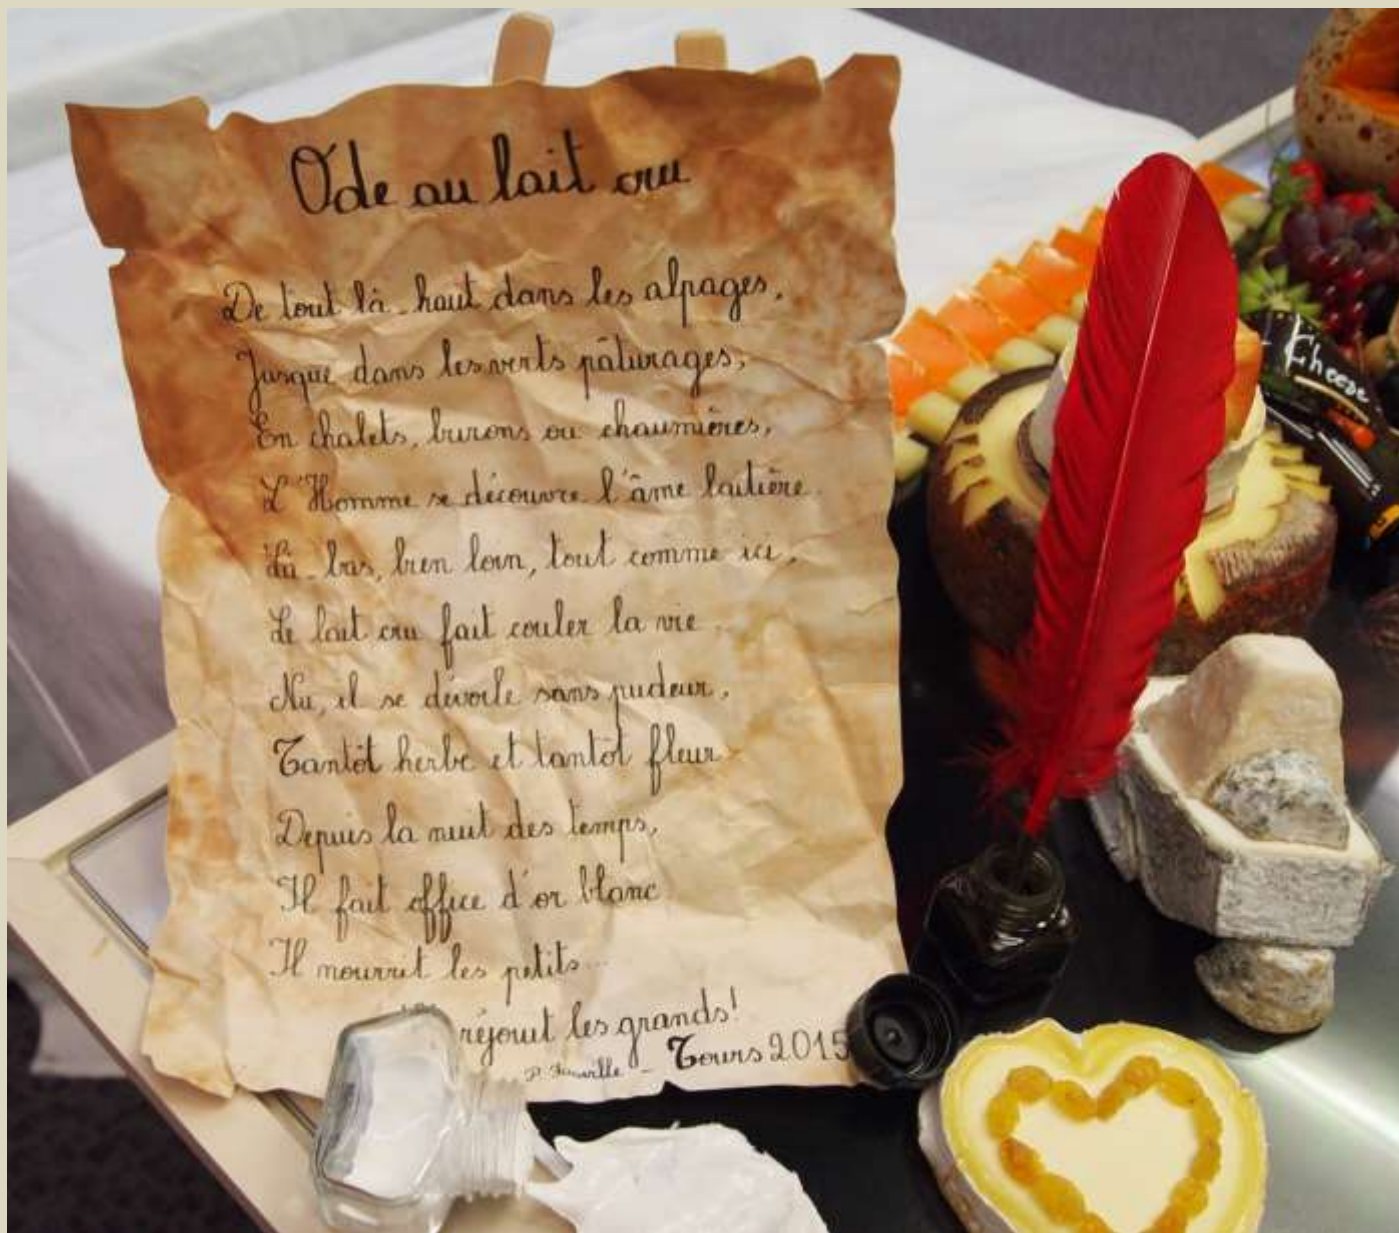 Ode au lait cru
De tout là-haut dans les alpages,
Jusque dans les verts pâturages,
En chalets, burons ou chaumières,
L'Homme se découvre l'âme laitière.
Là-bas, bien loin, tout comme ici,
Le lait cru fait couler la vie.
Nu, il se dévoile sans pudeur,
Tantôt herbe et tantôt fleur.
Depuis la nuit des temps,
Il fait office d'or blanc
Il nourrit les petits...
réjouit les grands!
Tours 2015
Cheese